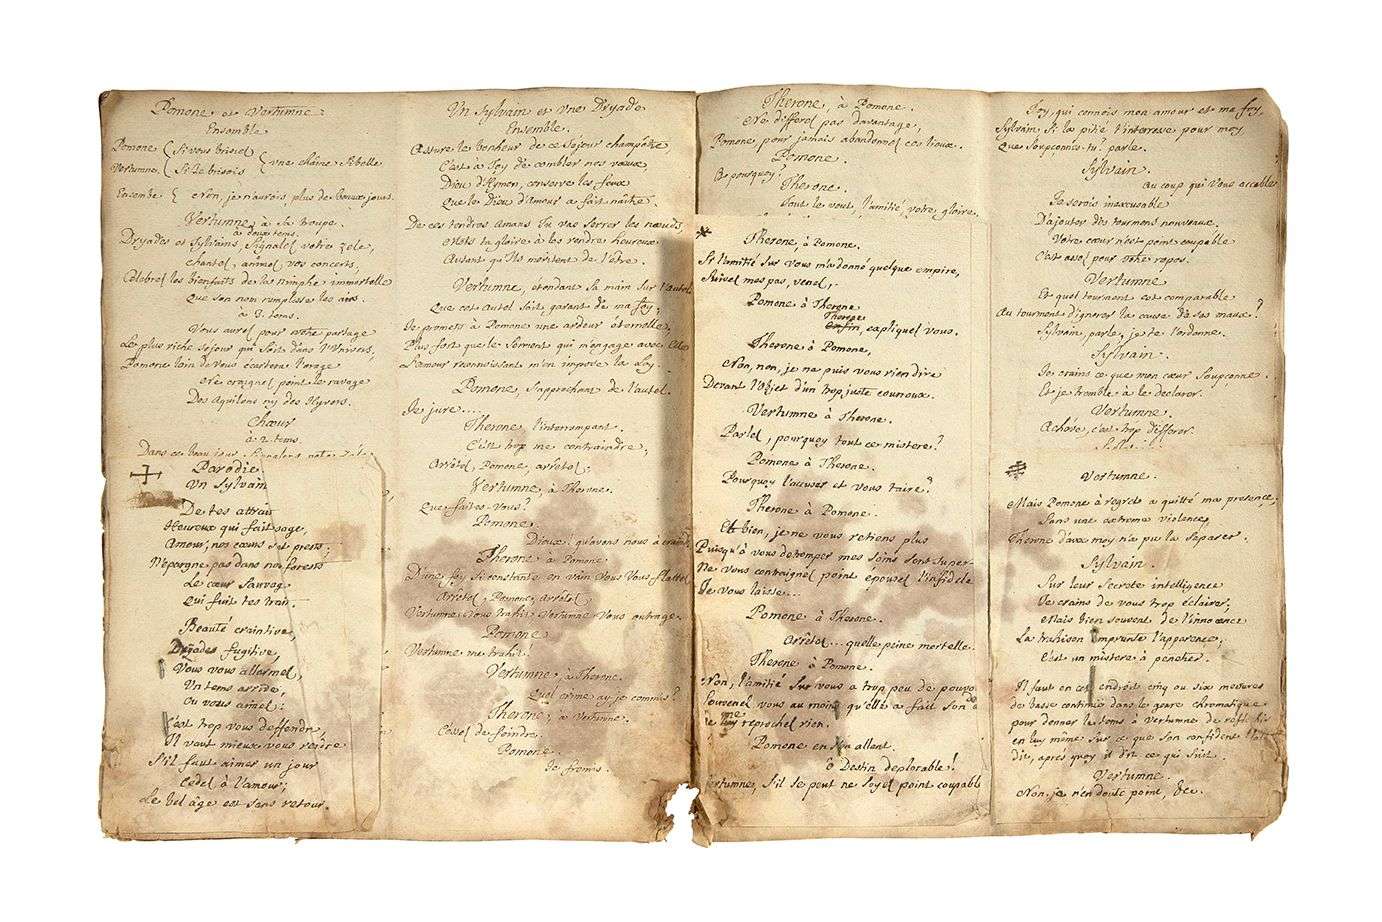 Pomone et Vertumne
Ensemble
Pomone { Si vous brisiez
Vertumne { Si je brisois } une chaîne si belle
Ensemble { Non, je n'aurois plus de beaux jours.
Vertumne à sa troupe.
à deux tems.
Dryades et Sylvains, Signalez votre zele,
Chantez, animez vos concerts,
Celebrez les bienfaits de la Nimphe immortelle
Que son nom remplisse les airs.
à 3. tems.
Vous aurez pour votre partage
Le plus riche sejour qui soit dans l'Univers,
Pomone loin de vous écartera l'orage
Ne craignez point le ravage
Des Aquilons ny des Hyvers.
Chœur
à 2 tems
Dans ce beau jour
Parodie.
Un Sylvain
De tes attrai
Heureux qui fait sage,
Amour, nos cœurs sont prests;
N'épargne pas dans nos forests
Le cœur Sauvage
Qui fuit tes trai.
Beauté craintive,
Dryades fugitive,
Vous vous allarmez,
Un tems arrive,
Ou vous aimez:
C'est trop vous deffendre
Il vaut mieux vous rendre
S'il faut aimer un jour
Cedez à l'amour;
Le bel âge est sans retour.
Un Sylvain et une Dryade
Ensemble.
Assure le bonheur de ce séjour champêtre
C'est à Toy de combler nos vœux,
Dieu d'Hymen, conserve les feux
Que le Dieu d'Amour a fait naître.
De ces tendres Amans Tu vas serrer les nœuds,
Mets ta gloire à les rendre heureux
Autant qu'ils meritent de l'être.
Vertumne, etendant sa main sur l'autel
Que cet Autel soit garant de ma foy;
Je promets à Pomone une ardeur éternelle.
Plus fort que le Serment qui m'engage avec Elle
L'amour reconnoissant m'en impose la Loy.
Pomone, s'approchant de l'autel.
Je jure....
Therone l'interrompant.
C'est trop me contraindre,
Arrêtez, Pomone, arrêtez;
Vertumne, à Therone.
Que faites-vous?
Pomone.
Dieux! qu'avons nous à craindre
Therone à Pomone
D'une foy si constante en vain Vous Vous flattez
Arrêtez, Pomone, arrêtez,
Vertumne vous trahit, Vertumne Vous outrage.
Pomone
Vertumne me trahit!
Vertumne, à Therone.
Quel crime ay-je commis?
Therone, à Vertumne.
Cessez de feindre.
Pomone.
Je fremis.
Therone, à Pomone.
Ne differez pas davantage,
Pomone, pour jamais abandonnez ces lieux.
Pomone.
Et pourquoy?
Therone.
Tout le veut, l'amitié, votre gloire.
Therone, à Pomone.
Si l'amitié sur vous m'a donné quelque empire,
Suivez mes pas, venez,.
Pomone à Therone
Therone
enfin, expliquez vous.
Therone à Pomone,
Non, non, je ne puis vous rien dire
Devant l'objet d'un trop juste couroux.
Vertumne à Therone.
Parlez, pourquoy tout ce mistere?
Pomone à Therone.
Pourquoy l'accuser et vous taire?
Therone à Pomone.
Et bien, je ne vous retiens plus
Puisqu'à vous detromper mes soins sont super-
Ne vous contraignez point épousez l'infidele
Je vous laisse...
Pomone à Therone.
Arrêtez... quelle peine mortelle.
Therone à Pomone.
Non, l'amitié Sur vous a trop peu de pouvo
Souvenez vous au moins qu'elle a fait son de
me
ne luy reprochez rien,
Pomone en s'en allent.
ô Destin deplorable!
Vertumne, s'il se peut ne soyez point coupable
Toy, qui connois mon amour et ma foy,
Sylvain, si la pitié t'interesse pour moy
Que soupçonnes-tu? parle.
Sylvain.
Au coup qui Vous accable
Je serois inexcusable
D'ajouter des tourmens nouveaux.
Votre cœur n'est point coupable
C'est assez pour votre repos.
Vertumne
Et quel tourment est comparable
Au tourment d'ignorer la cause de ses maux?
Sylvain, parle, je te l'ordonne.
Sylvain.
Je crains ce que mon cœur soupçonne.
Et je tremble à le declarer.
Vertumne.
Acheve, c'est trop differer.
Vertumne.
Mais Pomone à regrets a quitté ma presence,
Sans une extreme violence,
Therone d'avec moy n'a pu la separer.
Sylvain.
Sur leur secrete intelligence
Je crains de vous trop éclairer;
Mais bien souvent de l'innocence
La trahison emprunte l'apparence;
C'est un mistere à penetrer.
Il faut en cet endroit cinq ou six mesures
de basse continüe dans le genre chromatique
pour donner le tems à Vertumne de refl
en luy même sur ce que son confident
dit, aprés quoy il dit ce qui suit.
Vertumne.
Non, je n'en doute point, &c.